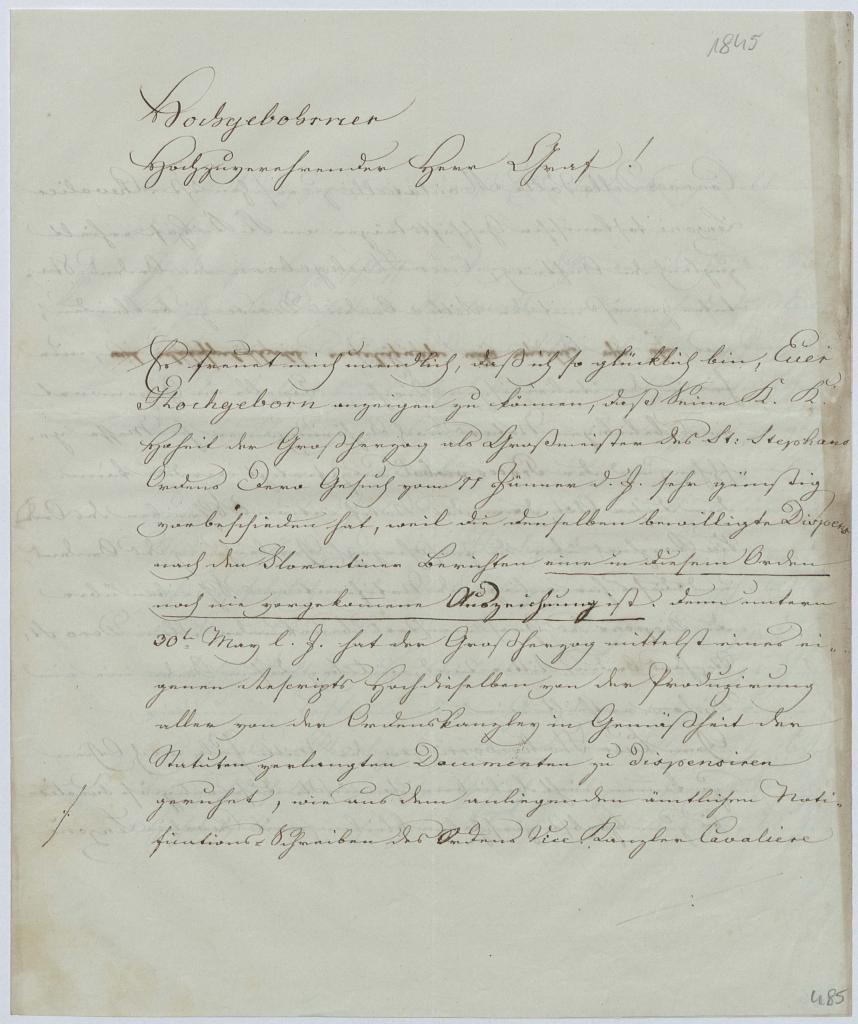 1845
Hochgebohrner
Hochzuverehrender Herr Graf !
Es freuet mich unendlich, daß ich so glücklich bin, Euer
Hochgeborn anzeigen zu können, daß Seine K. K.
Hoheit der Großherzog als Großmeister des St: Stephans
Ordens Dero Gesuch vom 11 Jänner d. J. sehr günstig
vorbeschieden hat, weil die denselben bewilligte Dispens
nach den Florentiner Berichten eine in diesem Orden
noch nie vorgekommene Auszeichnung ist. Denn untern
30t May l. J. hat der Großherzog mittelst eines ei-
genen Rescripts Hochdieselben von der Produzirung
aller von der Ordenskanzley in Gemäßheit der
Statuten verlangten Documenten zu dispensiren
geruhet, wie aus dem anliegenden ämtlichen Noti-
fications-Schreiben des Ordens Vice Kanzler Cavaliere
485